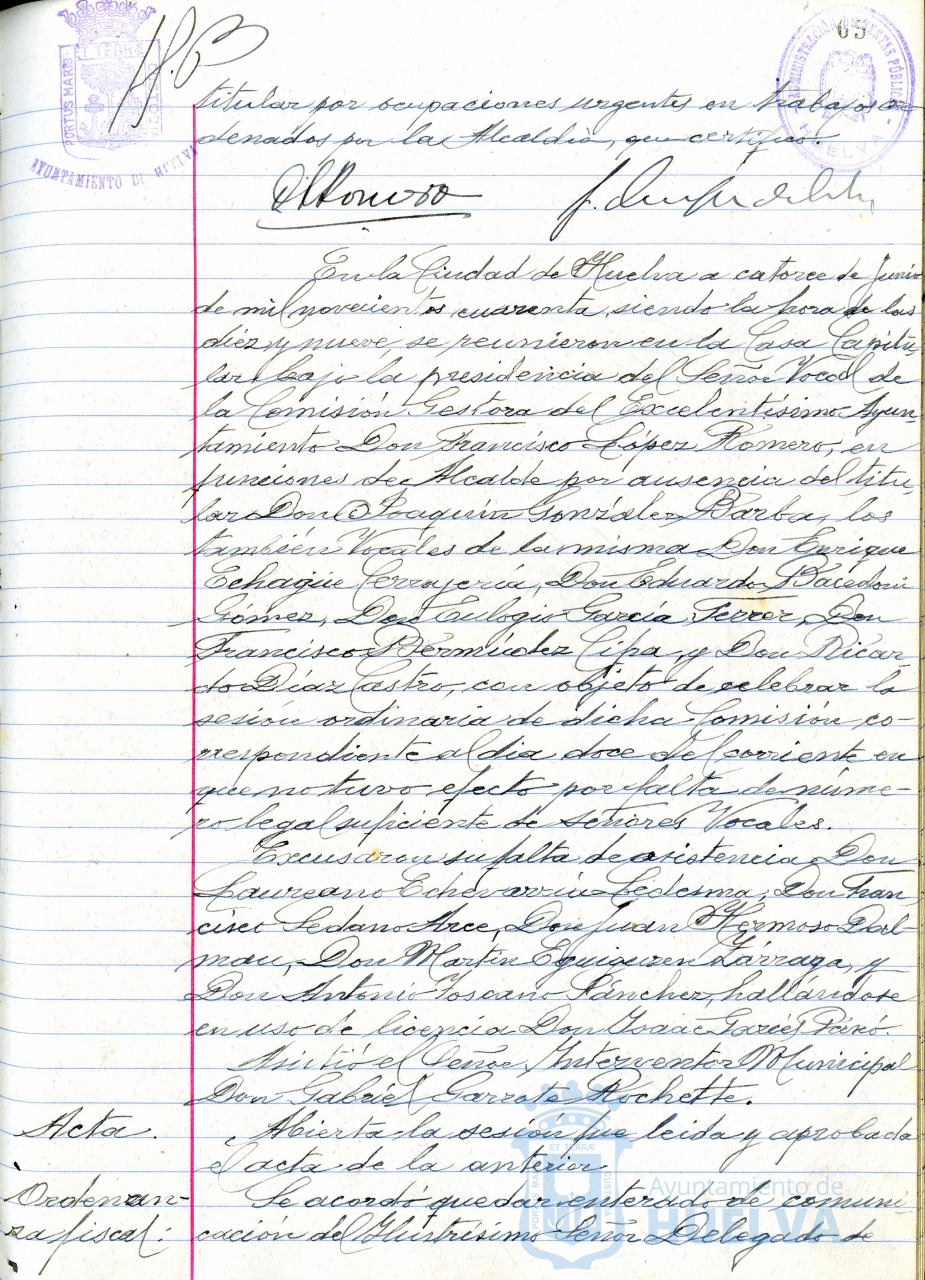 65
titular por ocupaciones urgentes en trabajos or-
denados por la Alcaldia, que certifico.
En la Ciudad de Huelva a catorce de Junio
de mil novecientos cuarenta, siendo la hora de las
diez y nueve, se reunieron en la Casa Capitu-
lar bajo la presidencia del Señor Vocal de
la Comisión Gestora del Excelentísimo Ayun-
tamiento Don Francisco López Romero, en
funciones de Alcalde por ausencia del titu-
lar Don Joaquín González Barba, los
también Vocales de la misma Don Enrique
Echagüe Cerrajería, Don Eduardo Bacedoni
Gómez, Don Eulogio García Ferrer, Don
Francisco Bermúdez Cipa, y Don Ricar-
do Díaz Castro, con objeto de celebrar la
sesión ordinaria de dicha Comisión co-
rrespondiente al dia doce del corriente en
que no tuvo efecto por falta de núme-
ro legal suficiente de señores Vocales.
Excusaron su falta de asistencia Don
Laureano Echevarría Ledesma, Don Fran-
cisco Sedano Arce, Don Juan Hermoso Dal-
mau, Don Martín Eguiguren Zárraga, y
Don Antonio Toscano Sánchez, hallándose
en uso de licencia Don Ysaac
Asistió el Señor Interventor Municipal
Don Gabriel Garrote Rochette.
Acta. Abierta la sesión fue leida y aprobada
el acta de la anterior
Ordenan- Se acordó quedar enterado de comuni-
za fiscal. cación del Ilustrísimo Señor Delegado de
PORTUS MARIS ET TERRÆ
AYUNTAMIENTO DE HUELVA
HUELVA
Ayuntamiento de
HUELVA